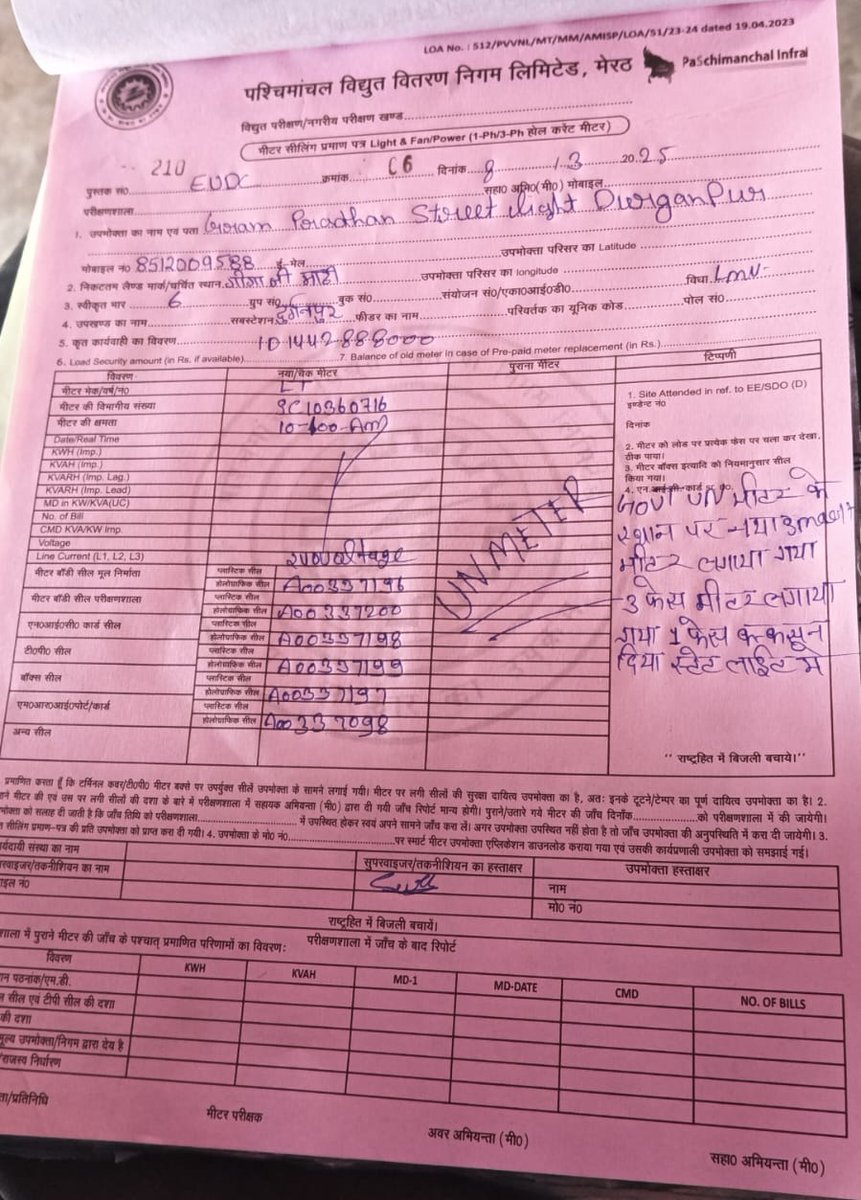 LOA No. : 512/PVVNL/MT/MM/AMISP/LOA/51/23-24 dated 19.04.2023
पश्चिमांचल विद्युत वितरण निगम लिमिटेड, मेरठ
PaSchimanchal Infra
विद्युत परीक्षण/नगरीय परीक्षण खण्ड
मीटर सीलिंग प्रमाण पत्र Light & Fan/Power (1-Ph/3-Ph होल करेट मीटर)
210
पुस्तक सं० EUDC क्रमांक C6 दिनांक 8/3 2025
परीक्षणशाला सहा० अभि० (मी०) मोबाइल
1. उपभोक्ता का नाम एवं पता Gram Pradhan Street light Durganpur
मोबाइल नं० 8512009588 ई-मेल उपभोक्ता परिसर का Latitude
2. निकटतम लैण्ड मार्क/चर्चित स्थान उपभोक्ता परिसर का longitude
3. स्वीकृत भार 6 ग्रुप सं० बुक सं० संयोजन सं०/एका०आई०डी० विधा Lmv
4. उपखण्ड का नाम सबस्टेशन दुर्गनपुर फीडर का नाम परिवर्तक का यूनिक कोड पोल सं०
5. कृत कार्यवाही का विवरण ID1442888000
6. Load Security amount (in Rs. if available) 7. Balance of old meter in case of Pre-paid meter replacement (in Rs.)
विवरण नया/चेक मीटर पुराना मीटर टिप्पणी
मीटर मेक/वर्ष/नं० LT
मीटर की विभागीय संख्या SC10360716
मीटर की क्षमता 10-100-Am
Date/Real Time
KWH (Imp.)
KVAH (Imp.)
KVARH (Imp. Lag.)
KVARH (Imp. Lead)
MD in KW/KVA(UC)
No. of Bill
CMD KVA/KW Imp.
Voltage
Line Current (L1, L2, L3)
UN METER
मीटर बॉडी सील मूल निर्माता प्लास्टिक सील
होलोग्राफिक सील A00337196
मीटर बॉडी सील परीक्षणशाला प्लास्टिक सील
होलोग्राफिक सील A00337200
एन०आई०सी० कार्ड सील प्लास्टिक सील
होलोग्राफिक सील A00337198
टी०पी० सील प्लास्टिक सील
होलोग्राफिक सील A00337199
बॉक्स सील प्लास्टिक सील
होलोग्राफिक सील A00337197
एम०आर०आई०पोर्ट/कार्ड प्लास्टिक सील
होलोग्राफिक सील A00337098
अन्य सील
1. Site Attended in ref. to EE/SDO (D)
इण्डेन्ट नं०
दिनांक
2. मीटर को लोड पर प्रत्येक फेस पर चला कर देखा.
ठीक पाया।
3. मीटर बॉक्स इत्यादि को नियमानुसार सील
किया गया।
GOVT UN मीटर के
स्थान पर नया
मीटर लगाया गया
3 फेस मीटर लगाया
गया 1 फेस
दिया स्टेट लाइट मे
" राष्ट्रहित में बिजली बचाये।"
प्रमाणित करता हूँ कि टर्मिनल कवर/टी०पी० मीटर बक्से पर उपर्युक्त सीलें उपभोक्ता के सामने लगाई गयी। मीटर पर लगी सीलों की सुरक्षा दायित्व उपभोक्ता का है, अतः इनके टूटने/टेम्पर का पूर्ण दायित्व उपभोक्ता का है। 2.
मीटर की एवं उस पर लगी सीलों की दशा के बारे में परीक्षणशाला में सहायक अभियन्ता (मी०) द्वारा दी गयी जाँच रिपोर्ट मान्य होगी। पुराने/उतारे गये मीटर की जाँच दिनाँक को परीक्षणशाला में की जायेगी।
को सलाह दी जाती है कि जाँच तिथि को परीक्षणशाला में उपस्थित होकर स्वयं अपने सामने जाँच करा लें। अगर उपभोक्ता उपस्थित नहीं होता है तो जाँच उपभोक्ता की अनुपस्थिति में करा दी जायेगी। 3.
सीलिंग प्रमाण-पत्र की प्रति उपभोक्ता को प्राप्त करा दी गयी। 4. उपभोक्ता के मो० नं० पर स्मार्ट मीटर उपभोक्ता एप्लिकेशन डाउनलोड कराया गया एवं उसकी कार्यप्रणाली उपभोक्ता को समझाई गई।
संस्था का नाम सुपरवाइजर/तकनीशियन का हस्ताक्षर उपभोक्ता हस्ताक्षर
का नाम नाम
नं० मो० नं०
राष्ट्रहित में बिजली बचायें।
में पुराने मीटर की जाँच के पश्चात् प्रमाणित परिणामों का विवरण: परीक्षणशाला में जाँच के बाद रिपोर्ट
विवरण KWH KVAH MD-1 MD-DATE CMD NO. OF BILLS
पठनांक/एम.डी.
सील एवं टीपी सील की दशा
की दशा
मूल्य उपभोक्ता/निगम द्वारा देय है
राजस्व निर्धारण
/प्रतिनिधि मीटर परीक्षक अवर अभियन्ता (मी०) सहा० अभियन्ता (मी०)